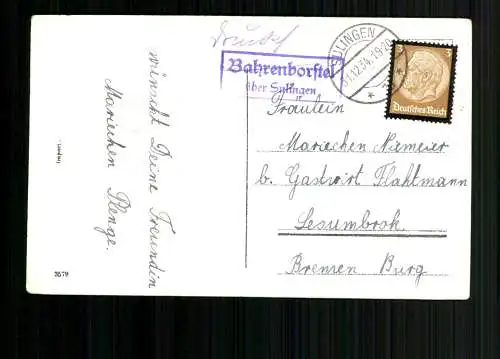 Drucks
Bahrenborstel
über Sulingen
SULINGEN
31.12.34.19-20
3
Deutsches Reich
Fräulein
Mariechen Niemeier
b. Gastwirt Flahtmann
Lesumbrok.
Bremen Burg
wünscht Deine Freundin
Mariechen Plenge.
Import.
3579